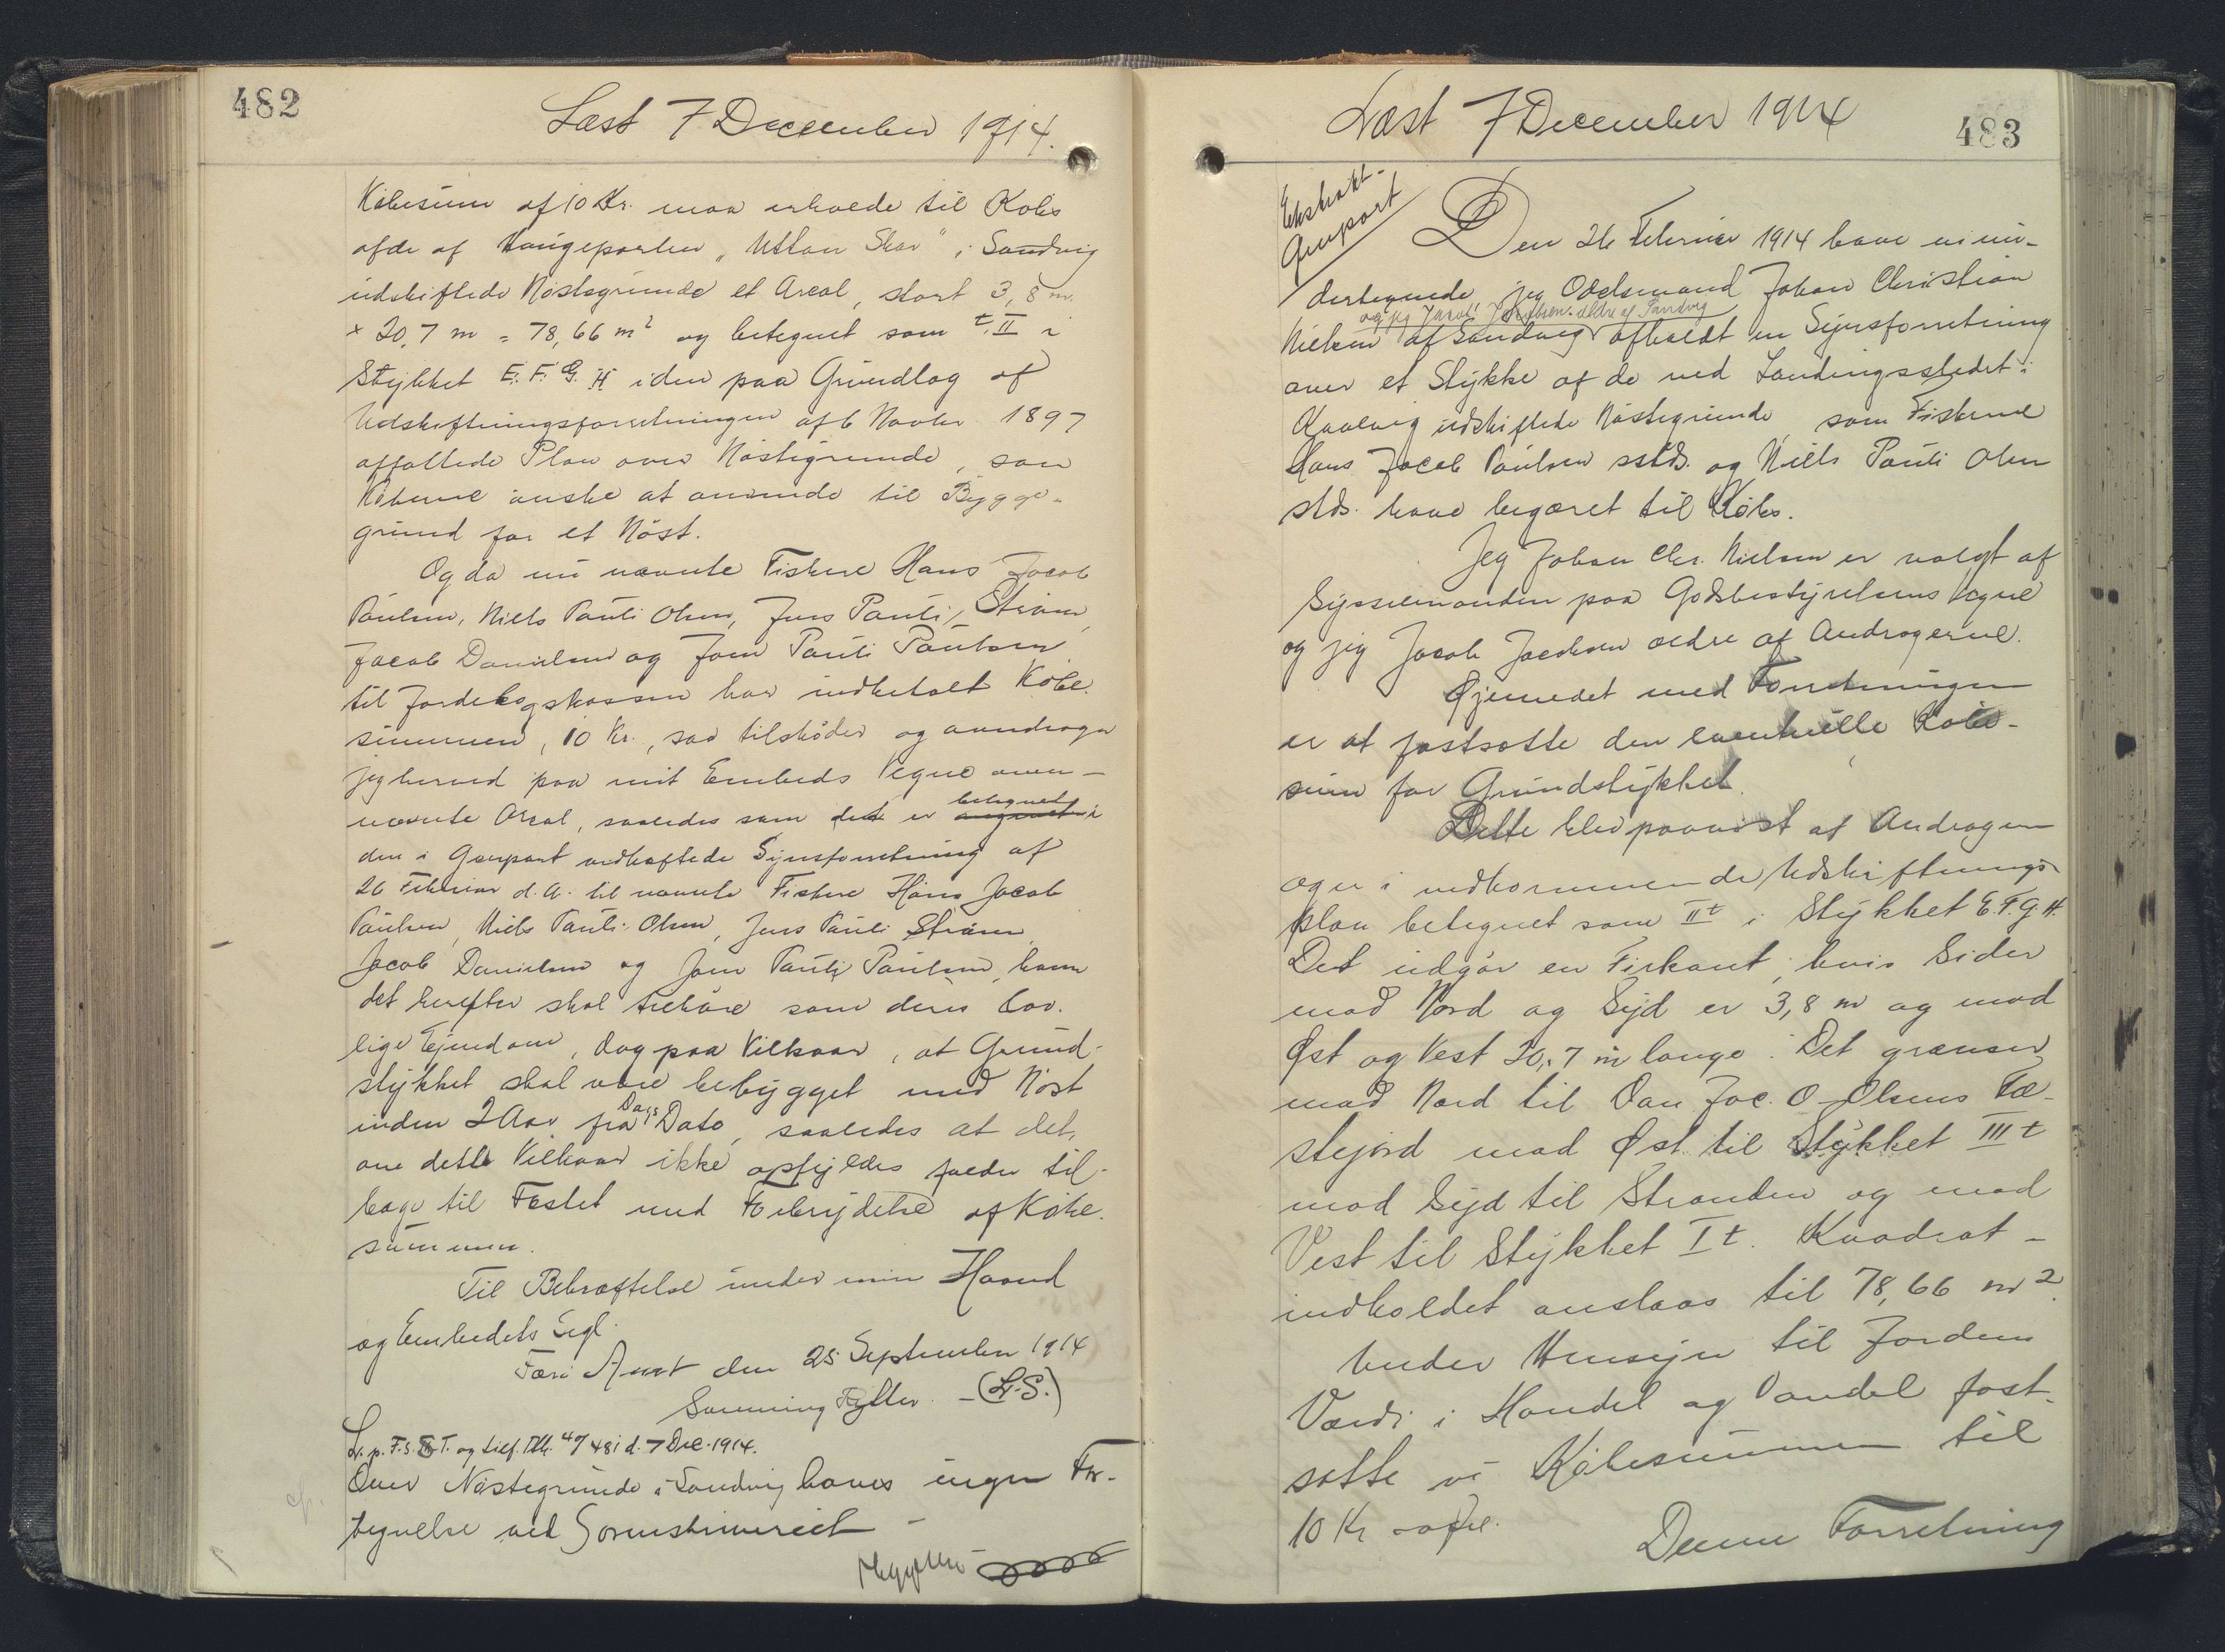 482
Læst 7 December 1914.
Købesum af 10 Kr. maa erholde til Købs
af de af Haugeparten „Uttan Skar" i Sandvig
udskiftede Nøstegrunde et Areal, stort 3,8 m.
× 20,7 m = 78,66 m² og betegnet som t. II i
Stykket E. F. G. H i den paa Grundlag af
Udskiftningsforretningen af 6 Novbr 1897
affattede Plan over Nøstegrunde, som
Køberne ønske at anvende til Bygge-
grund for et Nøst.
Og da nu nævnte Fiskere Hans Jacob
Paulsen, Niels Pauli Olsen, Jens Pauli Strøm,
Jacob Danielsen og Joen Pauli Paulsen
til Jordebogskassen har indbetalt Købe-
summen, 10 Kr., saa tilskøder og overdrager
jeg herved paa mit Embeds Vegne oven-
nævnte Areal, saaledes som det er betegnet i
den i Genpart vedhæftede Synsforretning af
26 Februar d. A. til nævnte Fiskere Hans Jacob
Paulsen, Niels Pauli Olsen, Jens Pauli Strøm,
Jacob Danielsen og Joen Pauli Paulsen, hvem
det herefter skal tilhøre som deres lov-
lige Ejendom, dog paa Vilkaar, at Grund-
stykket skal være bebygget med Nøst
inden 2 Aar fra Dags Dato, saaledes at det,
om dette Vilkaar ikke opfyldes falder til-
bage til Fæstet med Fortrydelse af Købe-
summen.
Til Bekræftelse under min Haand
og Embedets Segl.
Færø Amt den 25 September 1914
Svenning Rytter. - (L.S.)
L. p. F. S. T. og tilf. Prt. 40/481 d. 7 Dec. 1914.
Over Nøstegrunde i Sandvig haves ingen For-
tegnelse ved Sorenskriveriet -
483
Læst 7 December 1914
Ekstrakt-
Genpart
Den 26 Februar 1914 have vi un-
dertegnede, jeg Odelsmand Johan Christian
og jeg Jacob Jacobsen ældre af Sandvig
Nielsen af Sandvig afholdt en Synsforretning
over et Stykke af de ved Landingsstedet i
Kvalvig udskiftede Nøstegrunde som Fiskerne
Hans Jacob Paulsen sstds. og Niels Pauli Olsen
stds. have begæret til Købs.
Jeg Johan Chr. Nielsen er valgt af
Sysselmanden paa Godsbestyrelsens Vegne
og jeg Jacob Jacobsen ældre af Andragerne.
Øjemedet med Forretningen
er at fastsætte den eventuelle Købe-
sum for Grundstykket.
Dette blev paavist af Andrageren
og er i vedkommende Udskiftnings-
plan betegnet som II t i Stykket E. F. G. H.
Det udgør en Firkant, hvis Sider
mod Nord og Syd er 3,8 m og mod
Øst og Vest 20,7 m lange. Det grænser
mod Nord til Dan. Jac. O. Olsens Fæ-
stejord mod Øst til Stykket III t
mod Syd til Stranden og mod
Vest til Stykket I t. Kvadrat-
indholdet anslaas til 78,66 m².
Under Hensyn til Jordens
Værdi i Handel og Vandel fast-
sætte vi Købesummen til
10 Kr
Denne Forretning